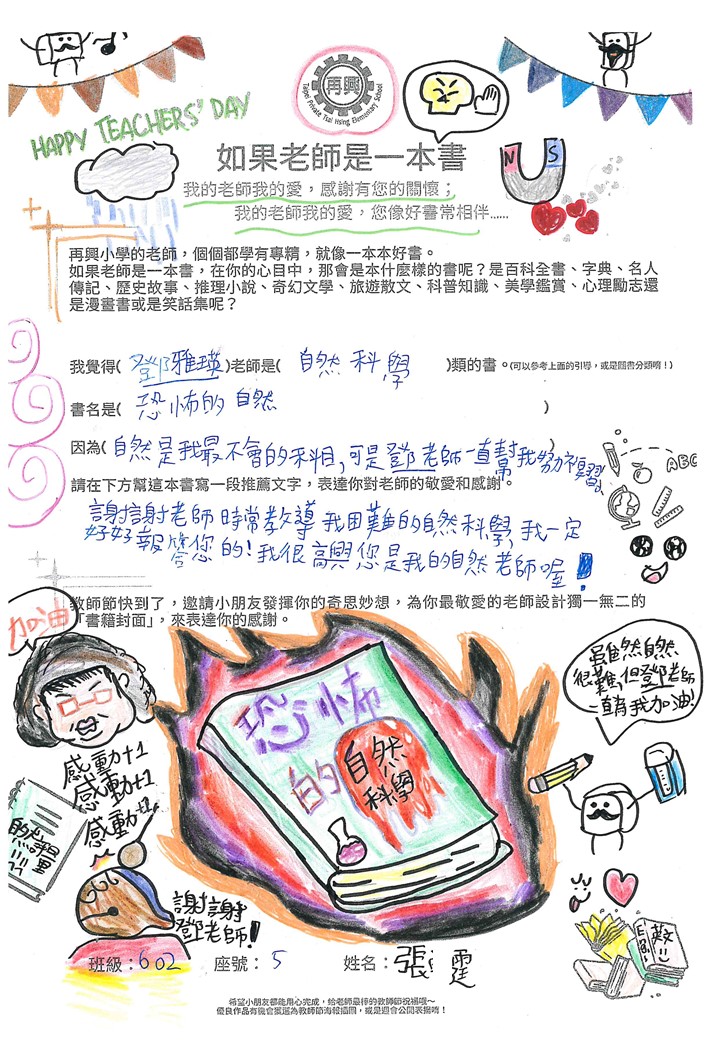 再興
Taipei Private Tsai Hsing Elementary School
HAPPY TEACHERS' DAY
N S
如果老師是一本書
我的老師我的愛，感謝有您的關懷；
我的老師我的愛，您像好書常相伴......
再興小學的老師，個個都學有專精，就像一本本好書。
如果老師是一本書，在你的心目中，那會是本什麼樣的書呢？是百科全書、字典、名人
傳記、歷史故事、推理小說、奇幻文學、旅遊散文、科普知識、美學鑑賞、心理勵志還
是漫畫書或是笑話集呢？
我覺得(鄧雅瑛)老師是(自然科學)類的書。(可以參考上面的引導，或是圖書分類唷！)
書名是(恐怖的自然)
因為(自然是我最不會的科目,可是鄧老師一直幫我努力複習。)
ABC
請在下方幫這本書寫一段推薦文字，表達你對老師的敬愛和感謝。
謝謝老師時常教導我困難的自然科學,我一定
好好報答您的!我很高興您是我的自然老師喔!
教師節快到了，邀請小朋友發揮你的奇思妙想，為你最敬愛的老師設計獨一無二的
「書籍封面」，來表達你的感謝。
加油
雖然自然
很難,但鄧老師
一直幫我加油!
恐怖
的
自然
科學
感動+1
感動+1
感動+1
謝謝
鄧老師!
英文
班級：602 座號：5 姓名：張 霆
希望小朋友都能用心完成，給老師最棒的教師節祝福哦~
優良作品有機會獲選為教師節海報插圖，或是週會公開表揚唷！